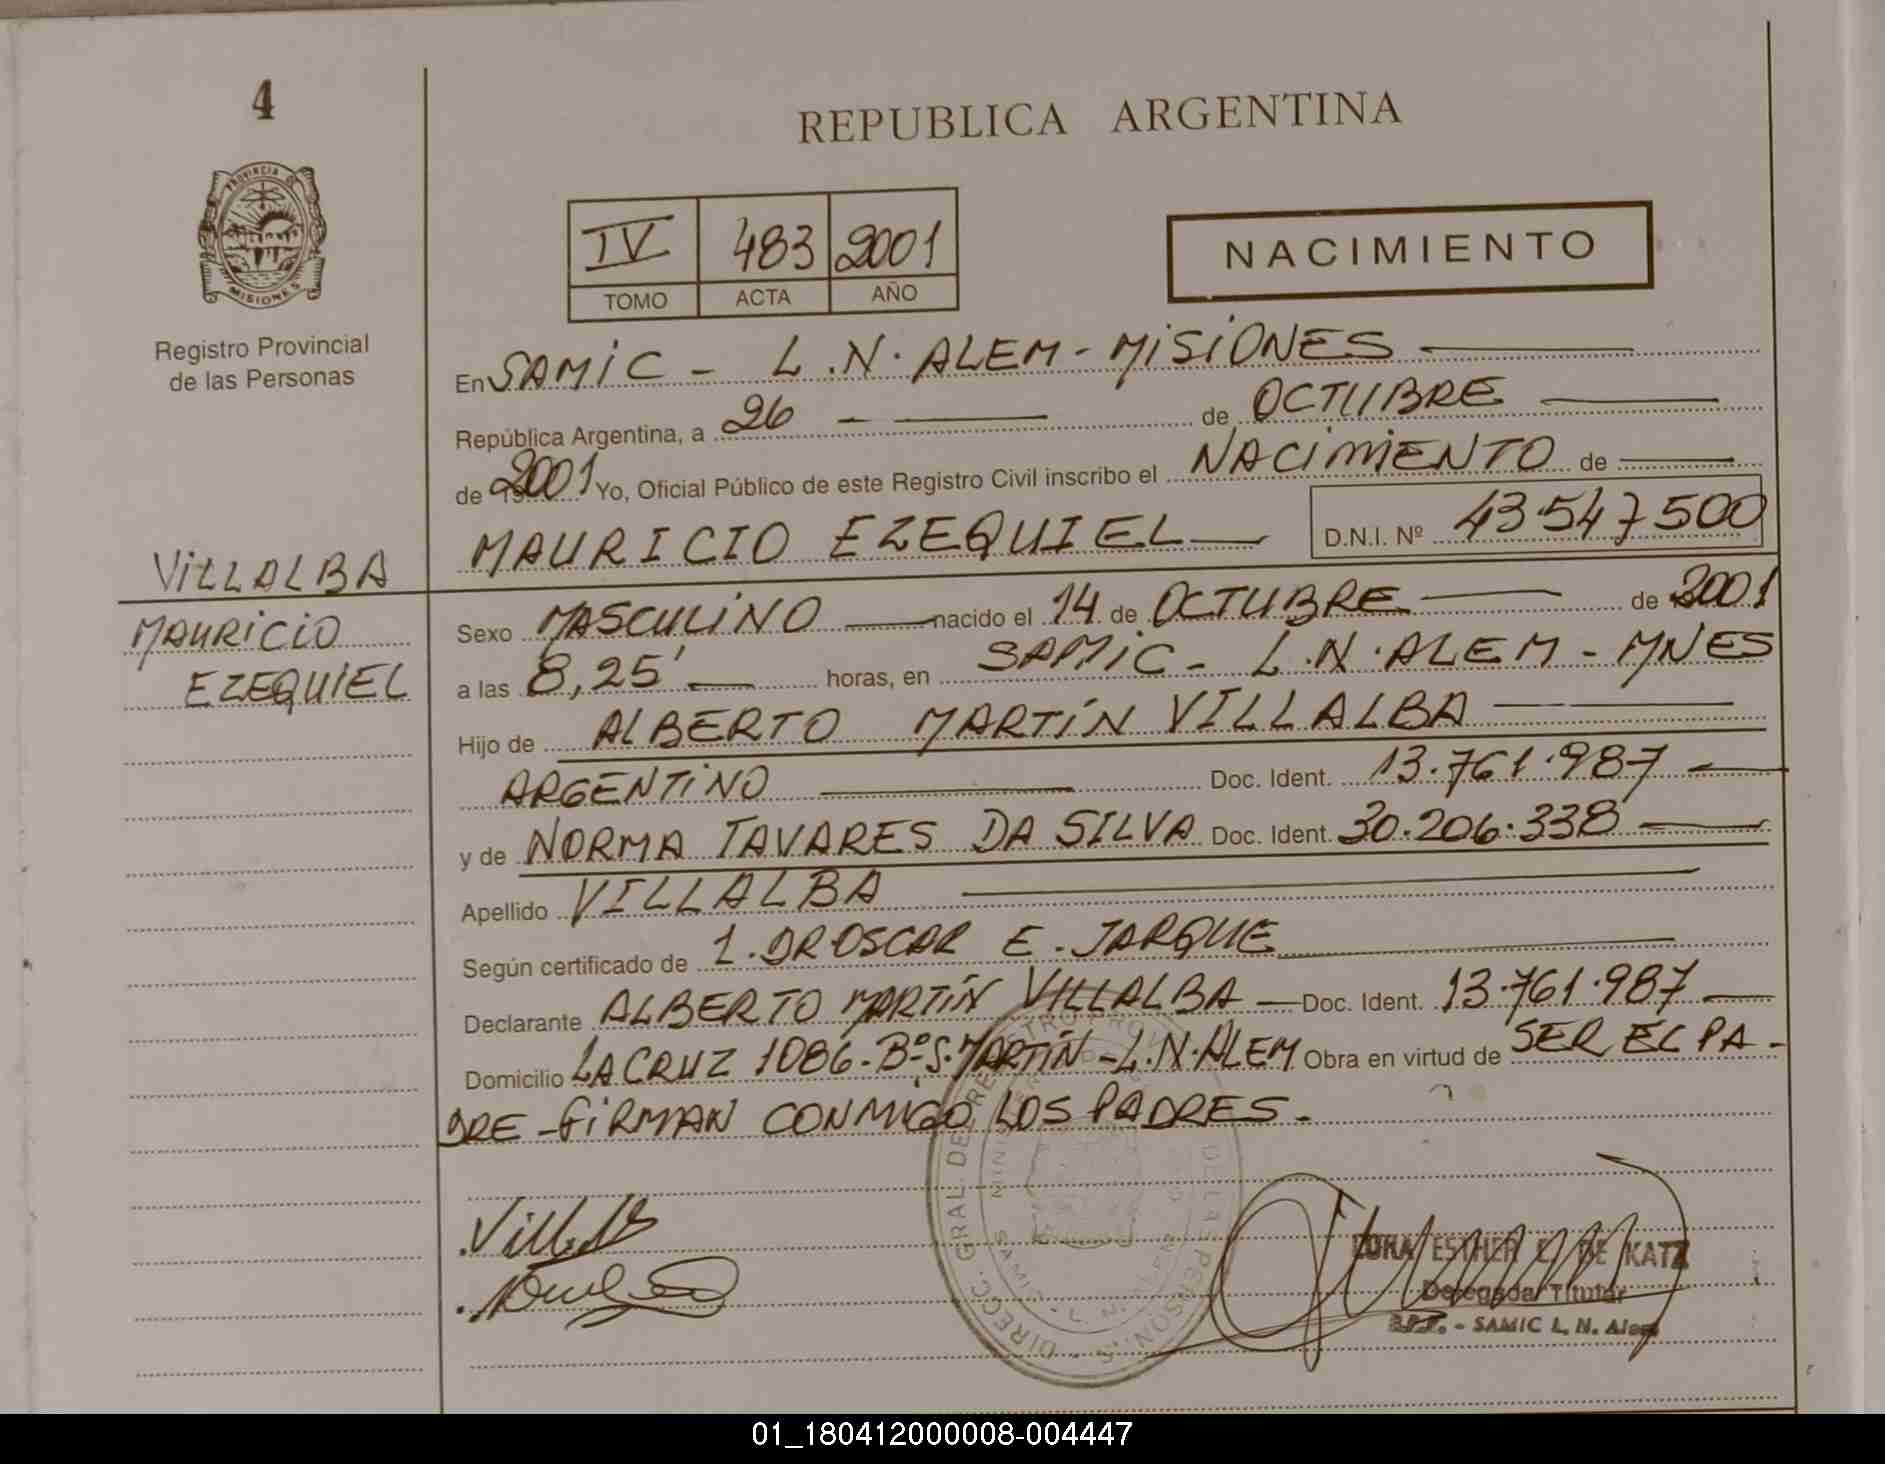 4
REPUBLICA ARGENTINA
PROVINCIA DE
MISIONES
Registro Provincial
de las Personas
IV 483 2001
TOMO ACTA AÑO
NACIMIENTO
En SAMIC - L.N. ALEM - MISIONES
República Argentina, a 26 de OCTUBRE
de 2001 Yo, Oficial Público de este Registro Civil inscribo el NACIMIENTO de
MAURICIO EZEQUIEL D.N.I. Nº 43.547500
VILLALBA
MAURICIO
EZEQUIEL
Sexo MASCULINO nacido el 14 de OCTUBRE de 2001
a las 8,25' horas, en SAMIC - L.N. ALEM - MNES
Hijo de ALBERTO MARTÍN VILLALBA
ARGENTINO Doc. Ident. 13.761.987
y de NORMA TAVARES DA SILVA Doc. Ident. 30.206.338
Apellido VILLALBA
Según certificado de 1. DR OSCAR E. JARQUE
Declarante ALBERTO MARTÍN VILLALBA Doc. Ident. 13.761.987
Domicilio LA CRUZ 1086 - Bº S. MARTÍN - L.N. ALEM Obra en virtud de SER EL PA-
DRE - FIRMAN CONMIGO LOS PADRES.
ESTHER DE KATZ
Delegada Titular
SAMIC L. N. Alem
01_180412000008-004447